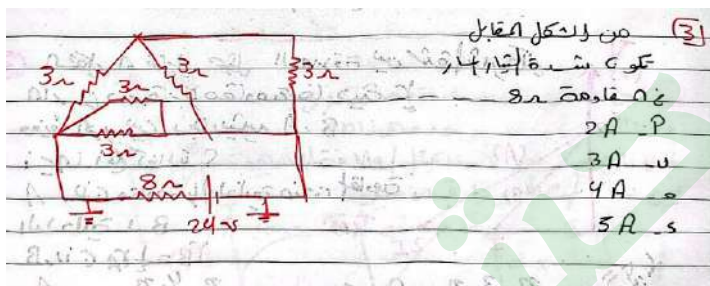 3 من الشكل المقابل
تكون شدة التيار المار
في مقاومة 8Ω
P - 2A
ب - 3A
ح - 4A
s - 5A
3Ω
3Ω
3Ω
3Ω
3Ω
8Ω
24v